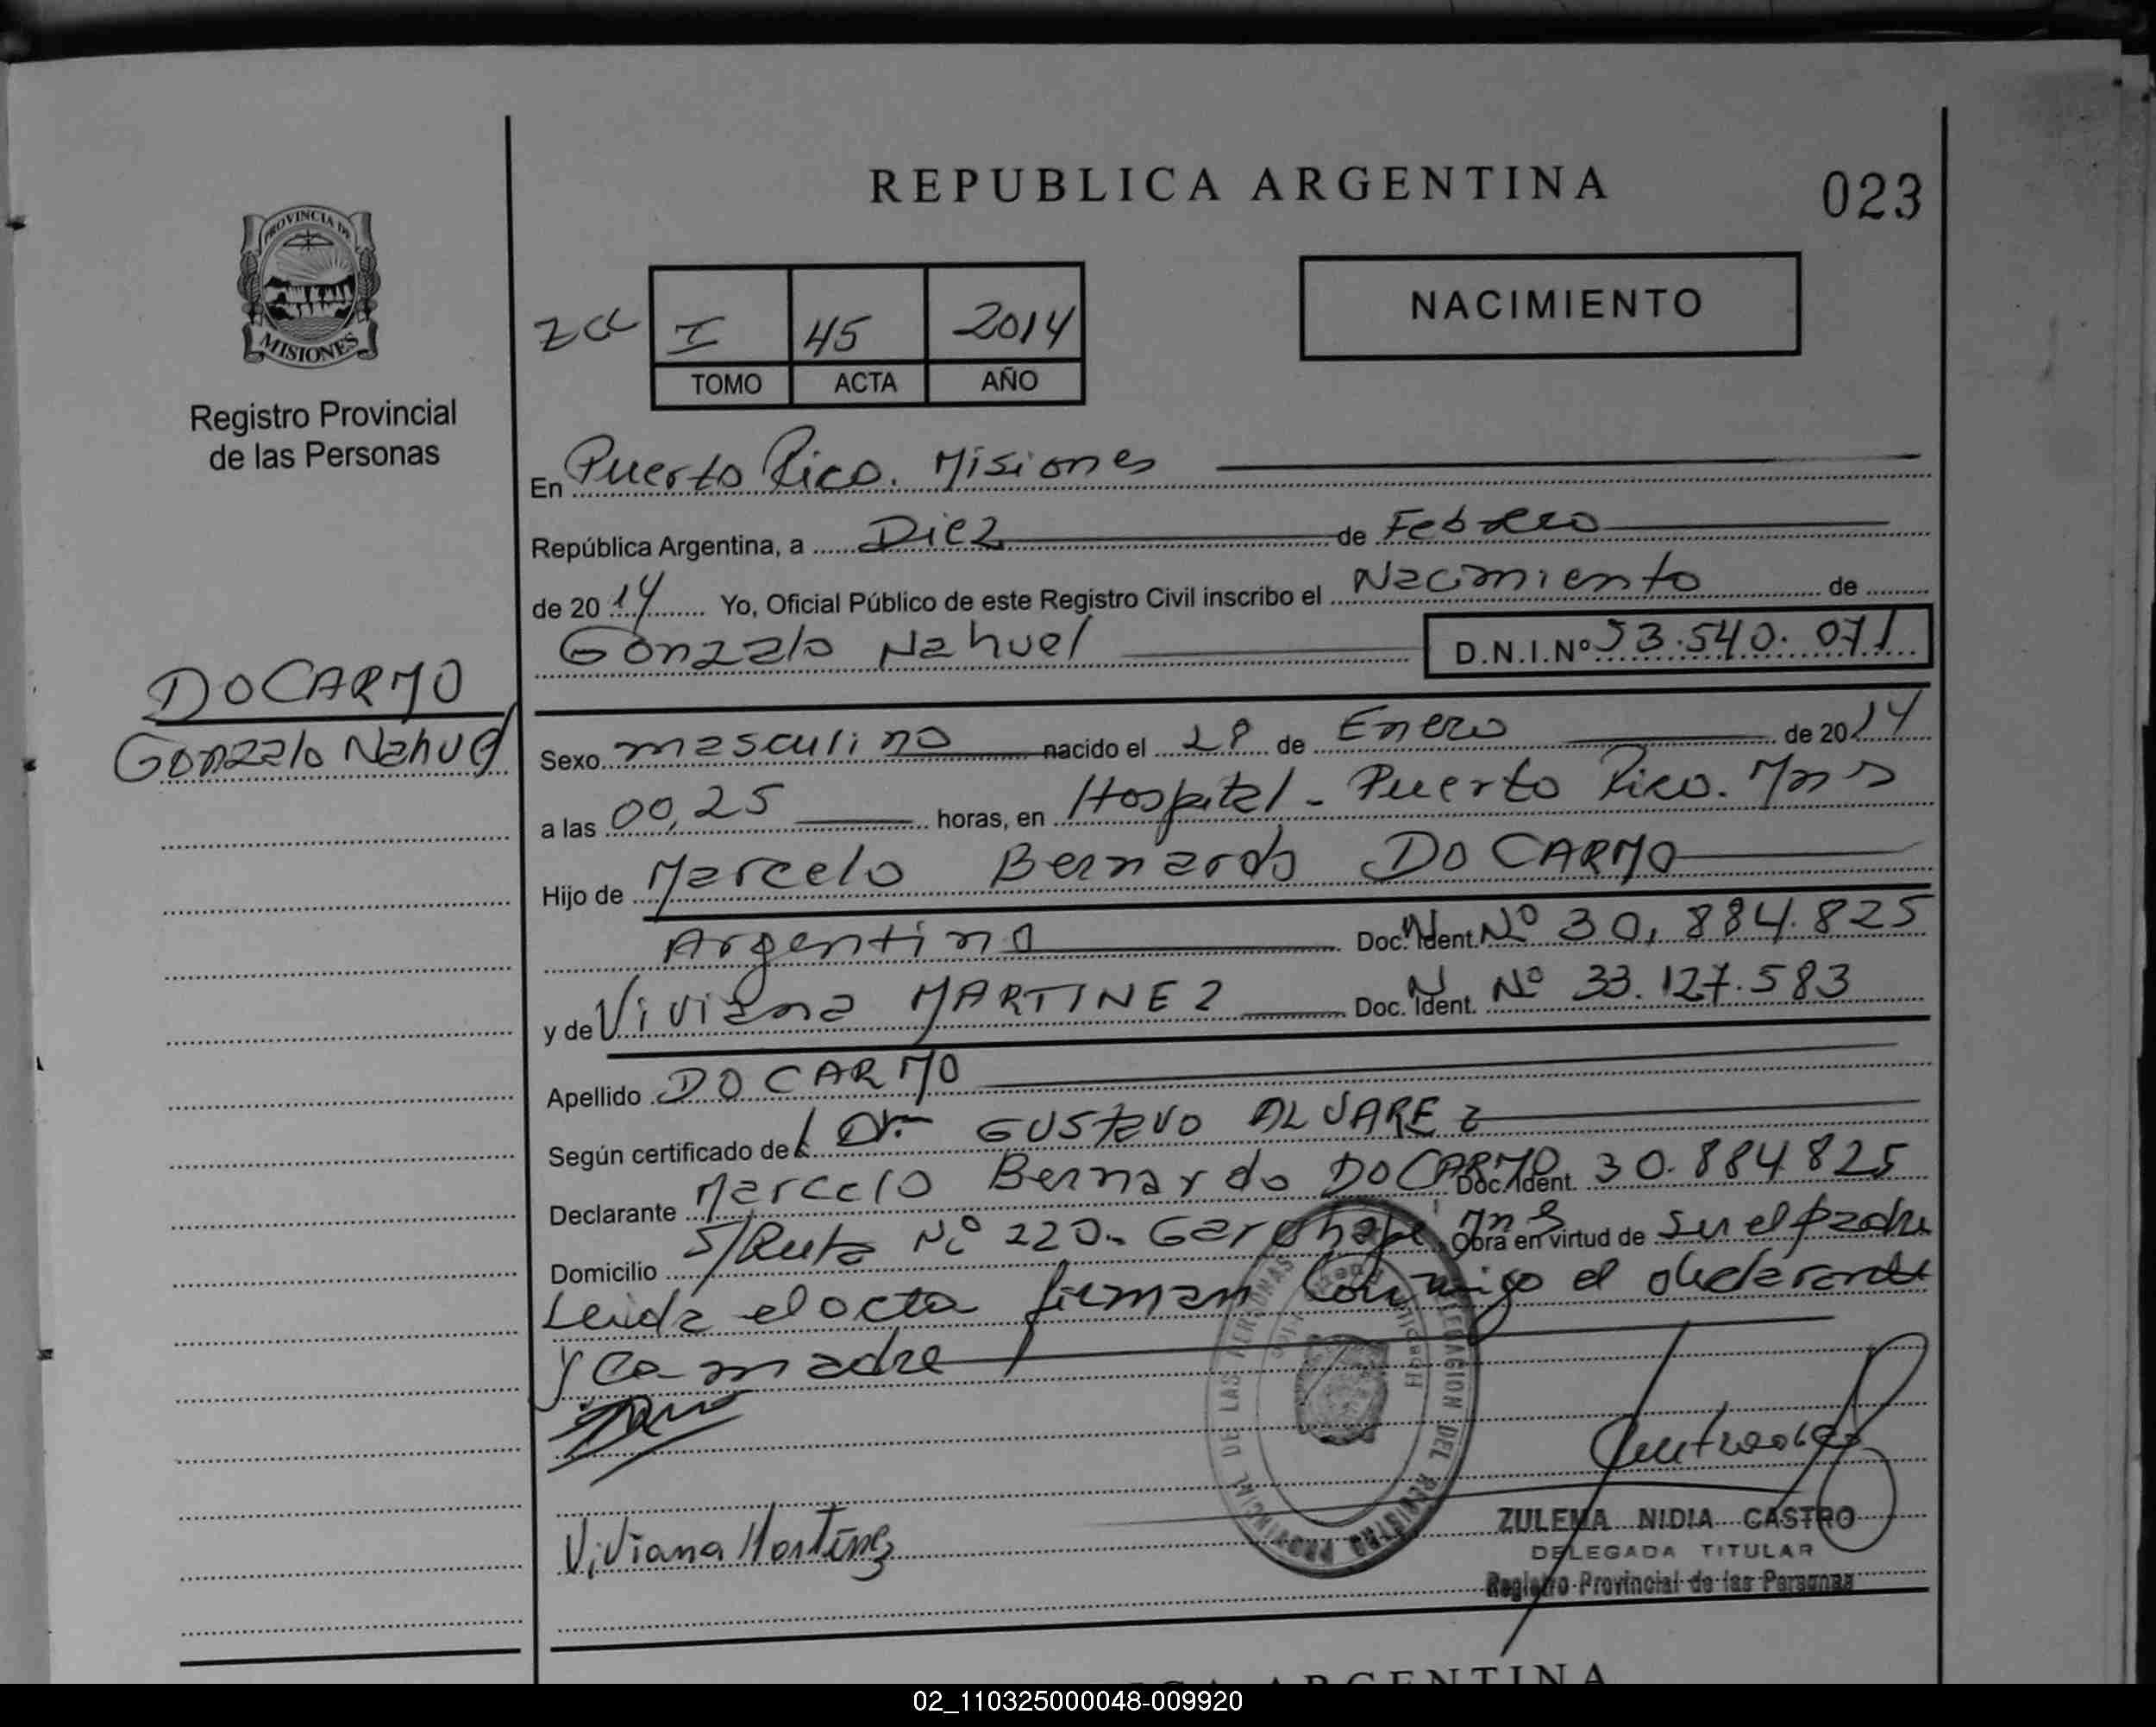 REPUBLICA ARGENTINA
023
PROVINCIA DE
MISIONES
Registro Provincial
de las Personas
NACIMIENTO
I 45 2014
TOMO ACTA AÑO
En Puerto Rico. Misiones
República Argentina, a Diez de Febrero
de 2014 Yo, Oficial Público de este Registro Civil inscribo el Nacimiento de
Gonzalo Nahuel D.N.I.Nº 53.540.071
DO CARMO
Gonzalo Nahuel
Sexo masculino nacido el 28 de Enero de 2014
a las 00,25 horas, en Hospital - Puerto Rico. Mns
Hijo de Marcelo Bernardo DO CARMO
Argentino Doc. Ident. Nº 30.884.825
y de Viviana MARTINEZ Doc. Ident. Nº 33.127.583
Apellido DO CARMO
Según certificado del Dr. Gustavo ALVAREZ
Declarante Marcelo Bernardo DO CARMO Doc. Ident. 30.884825
Domicilio S/Ruta Nº 220. Garuhapé Mns Obra en virtud de Ser el padre
Leida el acta firman conmigo el declarante
y la madre
Viviana Martinez
ZULEMA NIDIA CASTRO
DELEGADA TITULAR
Registro Provincial de las Personas
DELEGACION DEL REGISTRO PROVINCIAL DE LAS PERSONAS
ARGENTINA
02_110325000048-009920